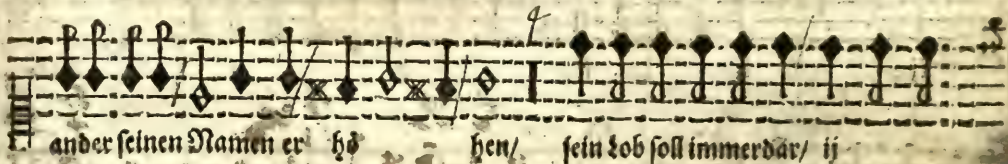 ander seinen Namen er hö hen/ sein Lob soll immerdar/ ij